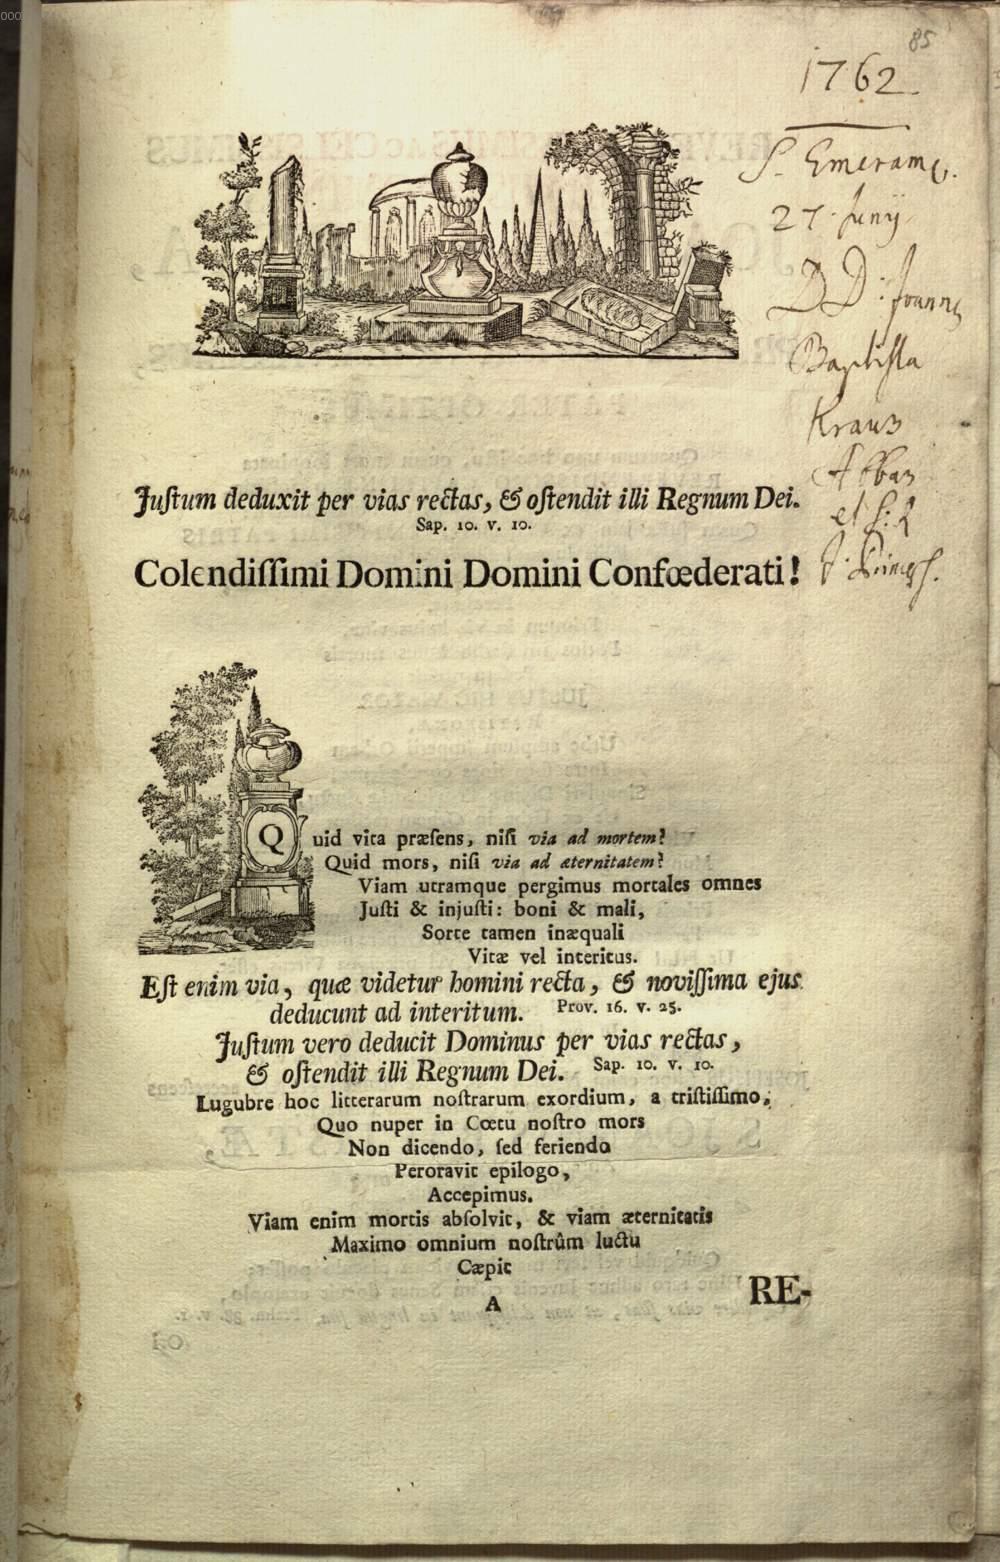 85
1762
S. Emeram.
27. Junij
DD: Joann
Baptista
Kraus
Abbas
et S: R
J. Princeps.
Juſtum deduxit per vias rectas, & oſtendit illi Regnum Dei.
Sap. 10. v. 10.
Colendiſſimi Domini Domini Confœderati!
Quid vita præſens, niſi via ad mortem?
Quid mors, niſi via ad æternitatem?
Viam utramque pergimus mortales omnes
Juſti & injuſti: boni & mali,
Sorte tamen inæquali
Vitæ vel interitus.
Eſt enim via, quæ videtur homini recta, & noviſſima ejus
deducunt ad interitum. Prov. 16. v. 25.
Juſtum vero deducit Dominus per vias rectas,
& oſtendit illi Regnum Dei. Sap. 10. v. 10.
Lugubre hoc litterarum noſtrarum exordium, a triſtiſſimo,
Quo nuper in Cœtu noſtro mors
Non dicendo, ſed feriendo
Peroravit epilogo,
Accepimus.
Viam enim mortis abſolvit, & viam æternitatis
Maximo omnium noſtrûm luctu
Cæpit
A
RE-